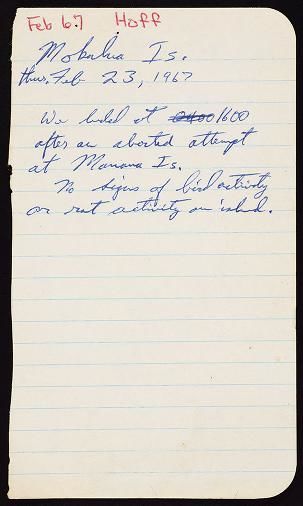 Feb 67 Hoff
Mokulua Is.
Thur. Feb 23, 1967
We landed at 0400 1600
after an aborted attempt
at Manana Is.
No signs of bird activity
or rat activity on island.